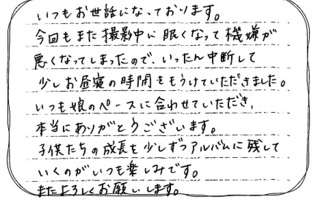 いつもお世話になっております。
今回もまた撮影中に眠くなって機嫌が
悪くなってしまったので、いったん中断して
少しお昼寝の時間をもうけていただきました。
いつも娘のペースに合わせていただき、
本当にありがとうございます。
子供たちの成長を少しずつアルバムに残して
いくのがいつも楽しみです。
またよろしくお願いします。